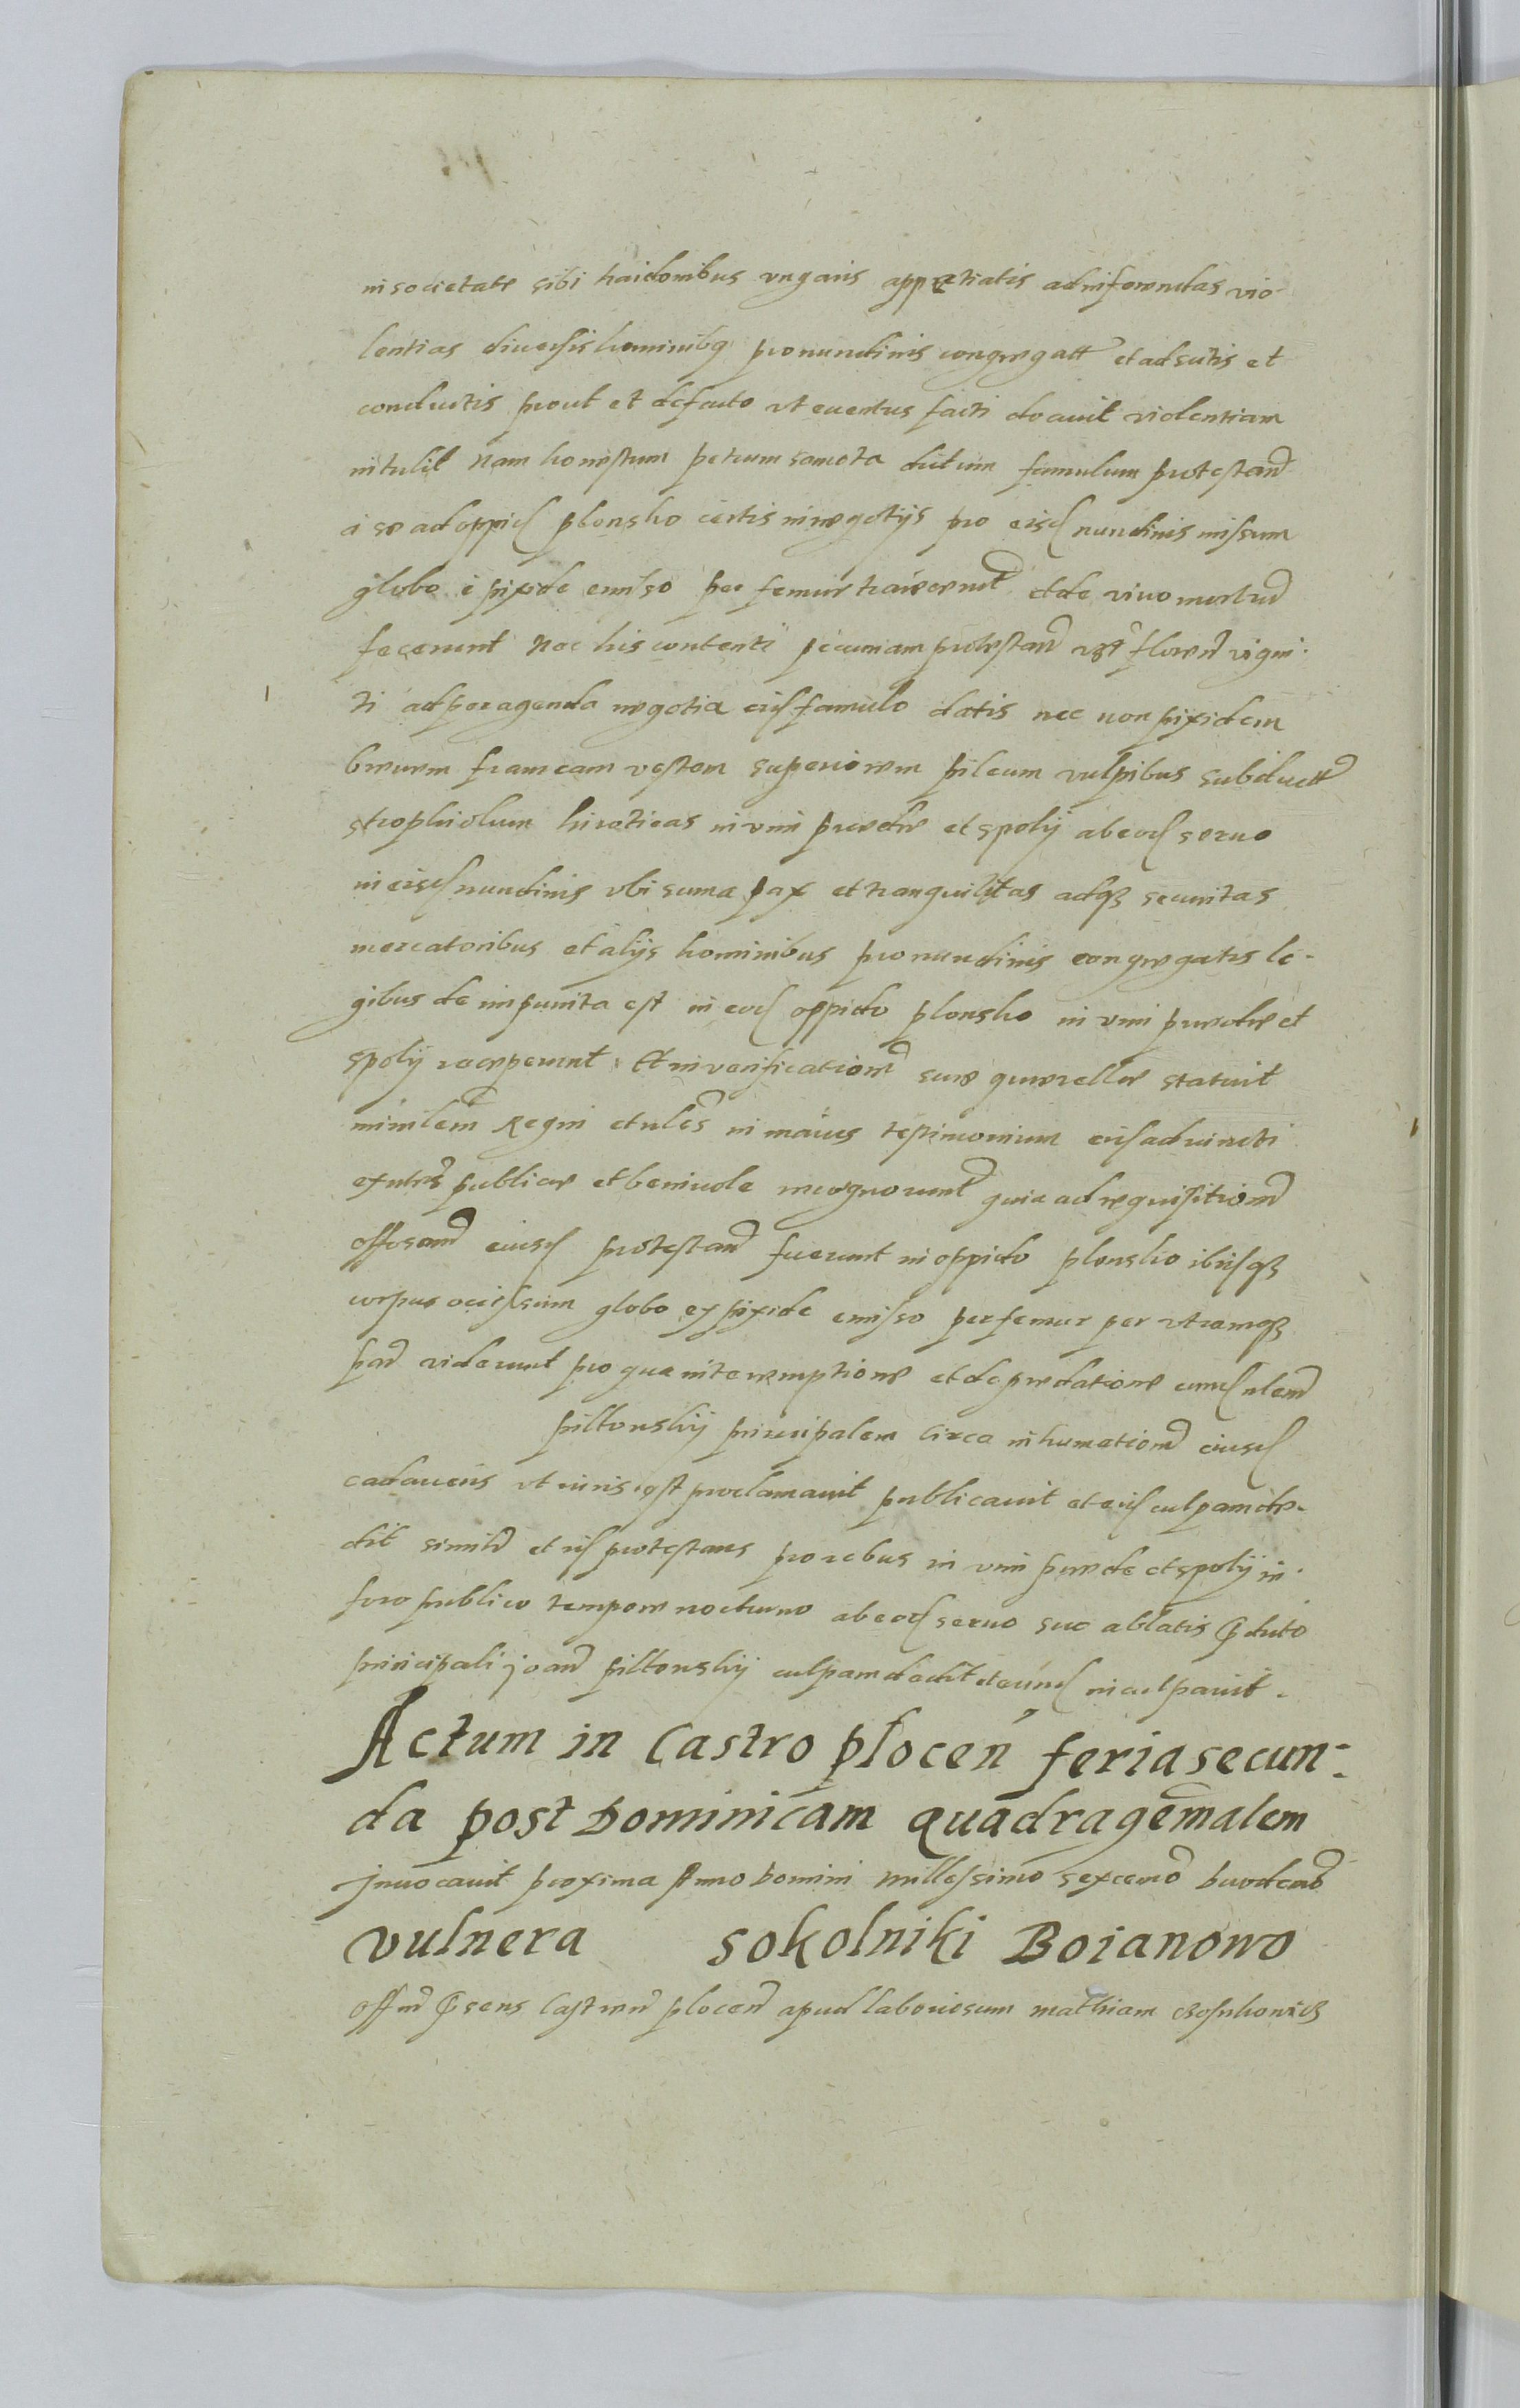 in societate sibi haidonibus vngaris appretiatis ad inferendas vio-
lentias diuersis hominibq pro nundinis congregatt et adscitis et
conductis prout et defacto vt euentus facti docuit violentiam
intulit Nam honestum petrum samota dictum famulum protestan
a se ad oppid plonsko certis in negotijs pro eisd nundinis missum
globo e pixide emisso per femur traiecerunt et de viuo mortuu
fecerunt Nec his contenti pecuniam protestan floren vigin-
ti ad peragenda negotia eid famulo datis nec non pixidem
breuem framcam vestem superiorem pileum vulpibus subductt
strophiolum hiroticas in vim praedae et spolij ab eod seruo
in eisd nundinis vbi suma pax et tranquilitas adq3 securitas
mercatoribus et alijs hominibus pro nundinis congregatis le-
gibus de impunita est in eod oppido plonsko in vim praedae et
spolij receperunt Et in verificationem suae quaerellae statuit
minilem Regni et nles in maius testimonium eid adiuncti
publice et beniuole recognorunt quia ad requisitionem
eiusd protestan fuerunt in oppido plonsko ibidq3
corpus occissum globo ex pixide emisso per femur per vtramq3
par viderunt pro qua interemptione et depredatione eund nlem
piltonskij principalem circa inhumationem eiusd
cadaueris vt iuris est proclamauit publicauit et eid culpam de-
dit simili et id protestans pro rebus in vim praede et spolij in
foro publico tempore nocturno ab eod seruo suo ablatis dicto
principali joan piltonskij culpam dedit et eund inculpauit.
Actum in Castro plocen feria secun-
da post Dominicam quadragemalem
Jnuocauit proxima Anno Domini millessimo sexcen
vulnera sokolniki Boianowo
Offm psens Castren plocen apud laboriosum mathiam